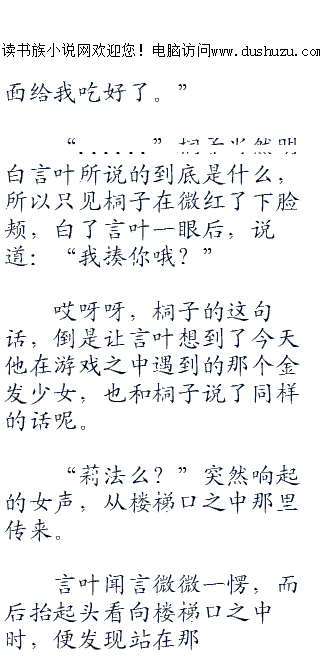 读书族小说网欢迎您！电脑访问www.dushuzu.com
面给我吃好了。”
“......”桐子当然明
白言叶所说的到底是什么，
所以只见桐子在微红了下脸
颊，白了言叶一眼后，说
道：“我揍你哦？”
哎呀呀，桐子的这句
话，倒是让言叶想到了今天
他在游戏之中遇到的那个金
发少女，也和桐子说了同样
的话呢。
“莉法么？”突然响起
的女声，从楼梯口之中那里
传来。
言叶闻言微微一愣，而
后抬起头看向楼梯口之中
时，便发现站在那